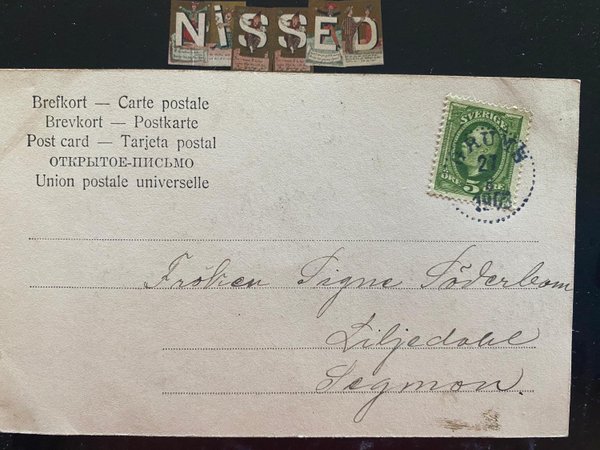 NiSSED
Brefkort — Carte postale
Brevkort — Postkarte
Post card — Tarjeta postal
ОТКРЫТОЕ-ПИСЬМО
Union postale universelle
SVERIGE
5
ÖRE
21
8
Fröken Signe Söderbom
Liljedahl
Segmon.